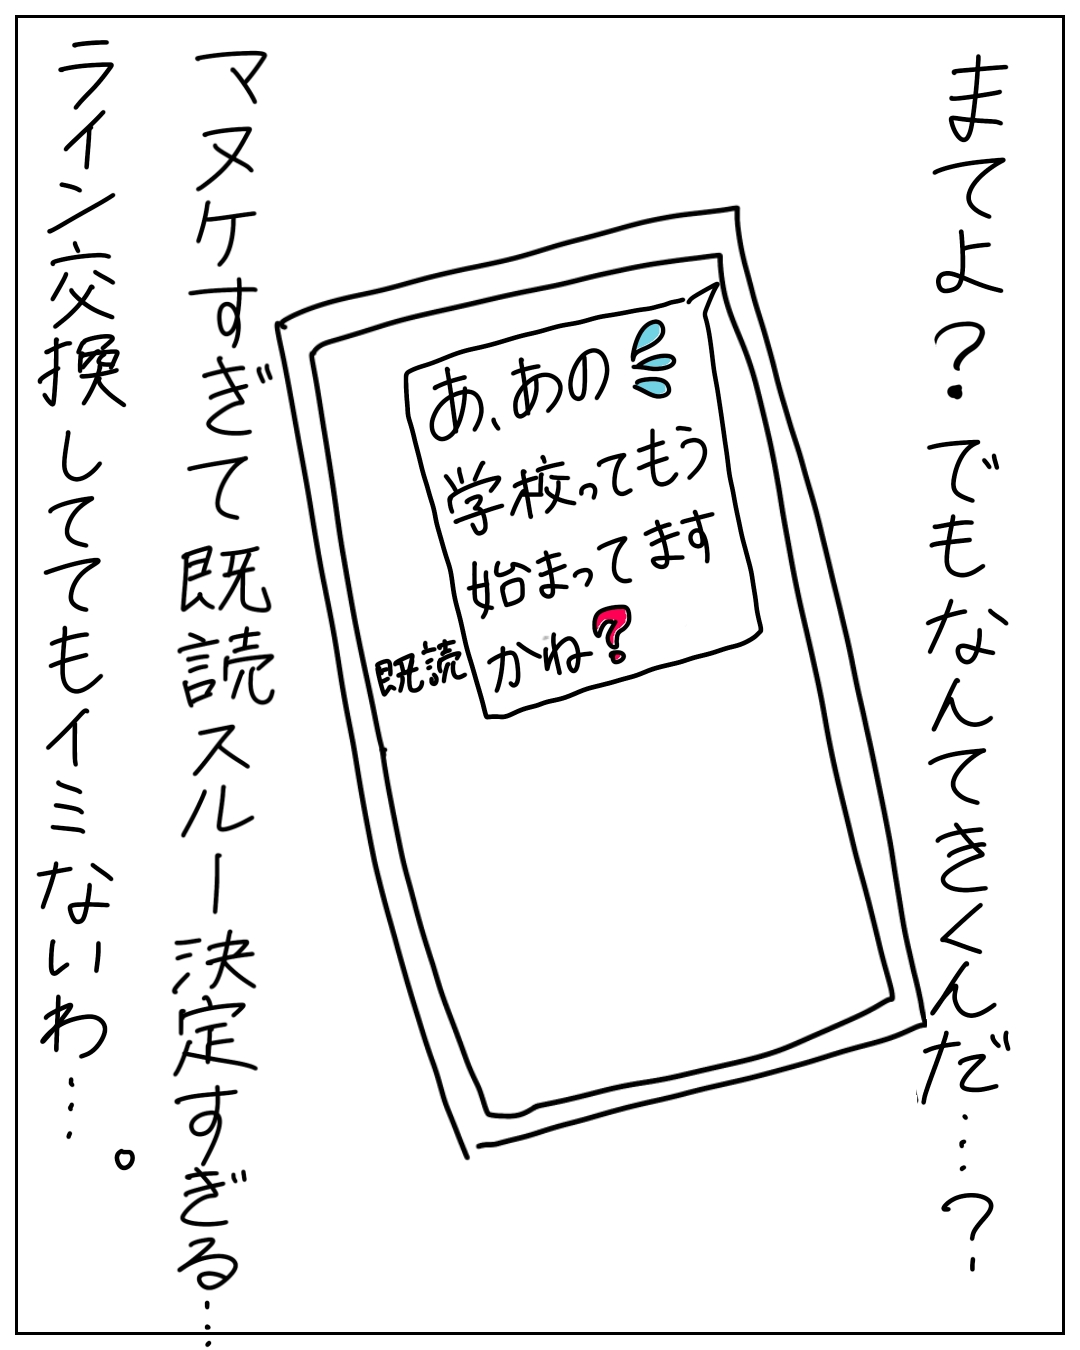 まてよ?でもなんてきくんだ…?
あ、あの
学校ってもう
始まってます
かね?
既読
マヌケすぎて既読スルー決定すぎる…
ライン交換しててもイミないわ…。